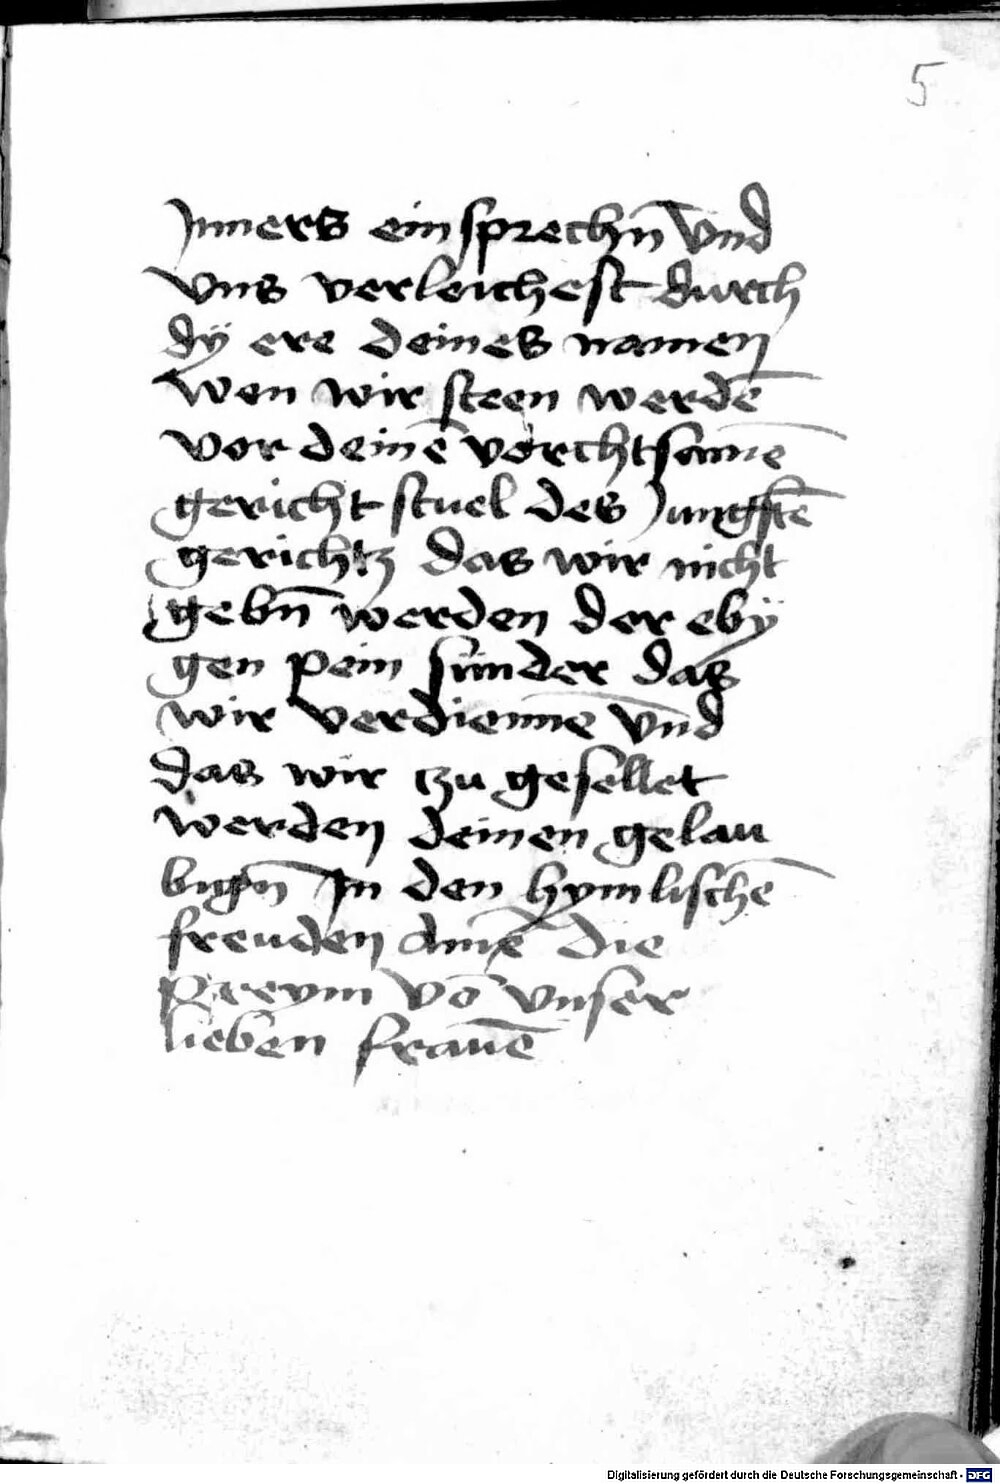 5
Jnners einsprechn̄ Vnd
vns verleichest durch
dÿ ere deines namen
wen wir steen werdē
vor deinē vorchtsamē
gericht stuel des Jungstē
gerichtz das wir nicht
gebn̄ werden der ebÿ
gen pein sunder das
wir verdienne vnd
das wir tzu gesellet
werden deinen gelau
bign̄ Jn den hymlischē
freuden Amē die
Preym vō vnser
lieben frauē
Digitalisierung gefördert durch die Deutsche Forschungsgemeinschaft - DFG